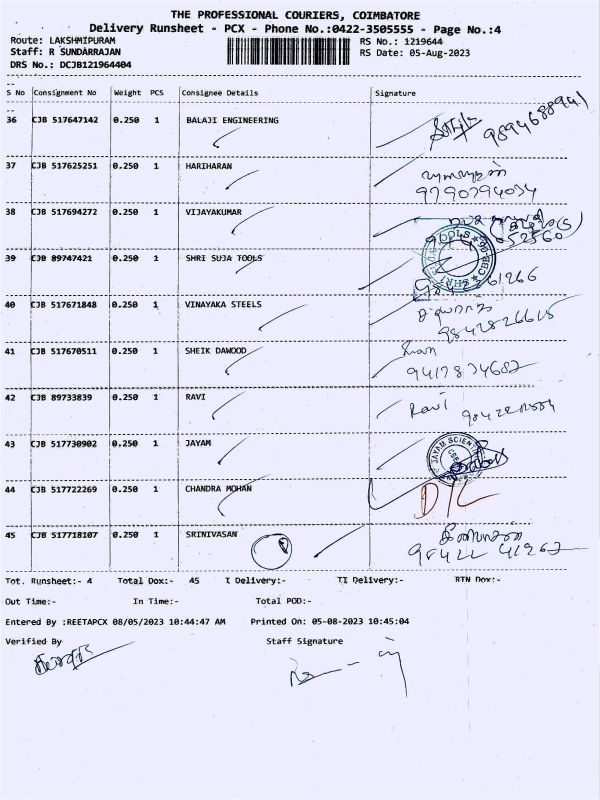 THE PROFESSIONAL COURIERS, COIMBATORE
Delivery Runsheet - PCX - Phone No.:0422-3505555 - Page No.:4
Route: LAKSHMIPURAM RS No.: 1219644
Staff: R SUNDARRAJAN RS Date: 05-Aug-2023
DRS No.: DCJB121964404
S No Consignment No Weight PCS Consignee Details Signature
36 CJB 517647142 0.250 1 BALAJI ENGINEERING
37 CJB 517625251 0.250 1 HARIHARAN
9790794034
38 CJB 517694272 0.250 1 VIJAYAKUMAR
39 CJB 89747421 0.250 1 SHRI SUJA TOOLS
40 CJB 517671848 0.250 1 VINAYAKA STEELS
9842826615
41 CJB 517670511 0.250 1 SHEIK DAWOOD
42 CJB 89733839 0.250 1 RAVI Ravi
43 CJB 517730902 0.250 1 JAYAM
44 CJB 517722269 0.250 1 CHANDRA MOHAN D/L
45 CJB 517718107 0.250 1 SRINIVASAN
98422 41267
Tot. Runsheet:- 4 Total Dox:- 45 I Delivery:- II Delivery:- RTN Dox:-
Out Time:- In Time:- Total POD:-
Entered By :REETAPCX 08/05/2023 10:44:47 AM Printed On: 05-08-2023 10:45:04
Verified By Staff Signature